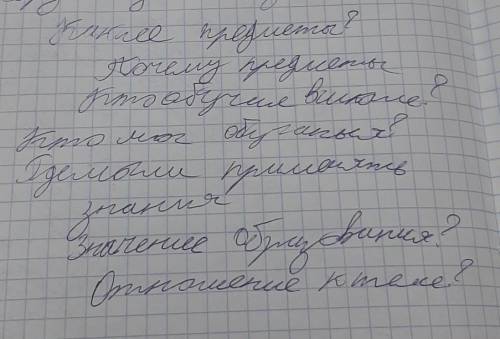 Какие предметы?
Почему предметы
Кто обучил в школе?
Кто мог обучаться?
Где могли применять
знания
Значение образования?
Отношение к теме?